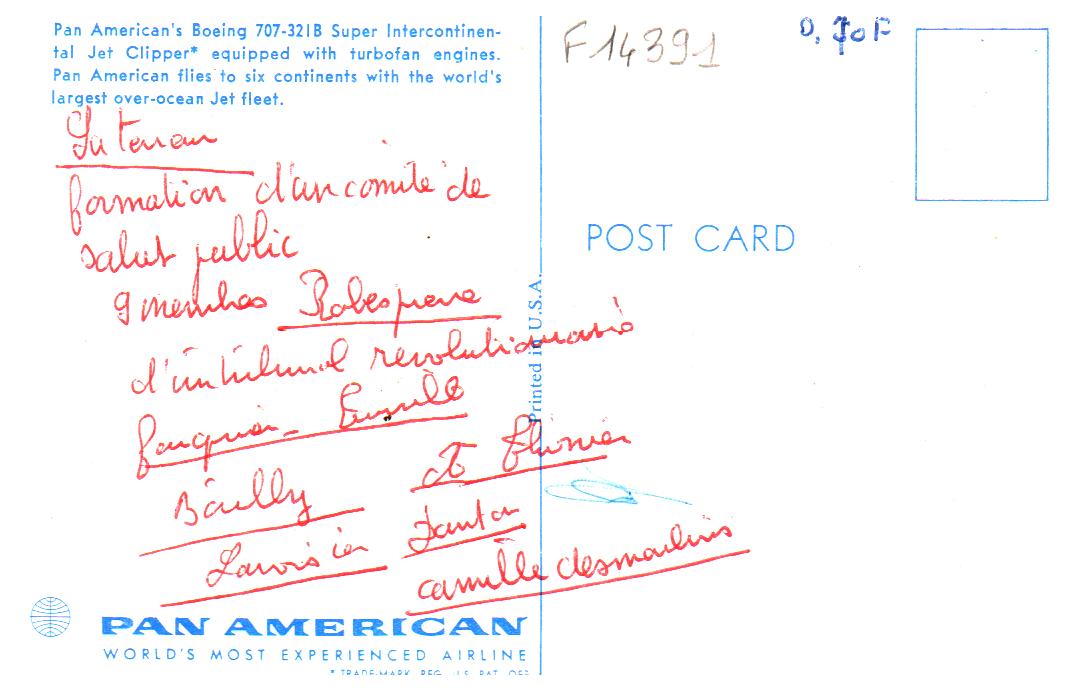 Pan American's Boeing 707-321B Super Intercontinen-
tal Jet Clipper* equipped with turbofan engines.
Pan American flies to six continents with the world's
largest over-ocean Jet fleet.
F14391
La terreur
formation d'un comité de
salut public
9 membres Robespierre
d'un tribunal revolutionnaire
fouquier-Tinville
Bailly
Lavoisier
A Chénier
Danton
camille desmoulins
POST CARD
Printed in U.S.A.
PAN AMERICAN
WORLD'S MOST EXPERIENCED AIRLINE
* TRADE-MARK REG. U.S. PAT. OFF.